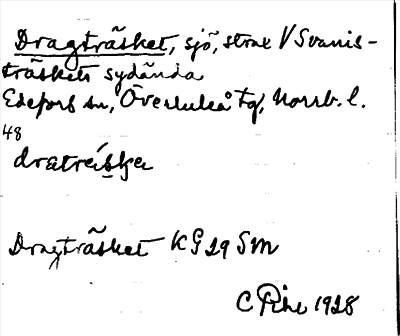 Dragträsket, sjö, strax V Svanis-
träskets sydända
Edefors sn, Överluleå tg, Norrb. l.
48
Dragträsket KG 29 SM
C Pihl 1928